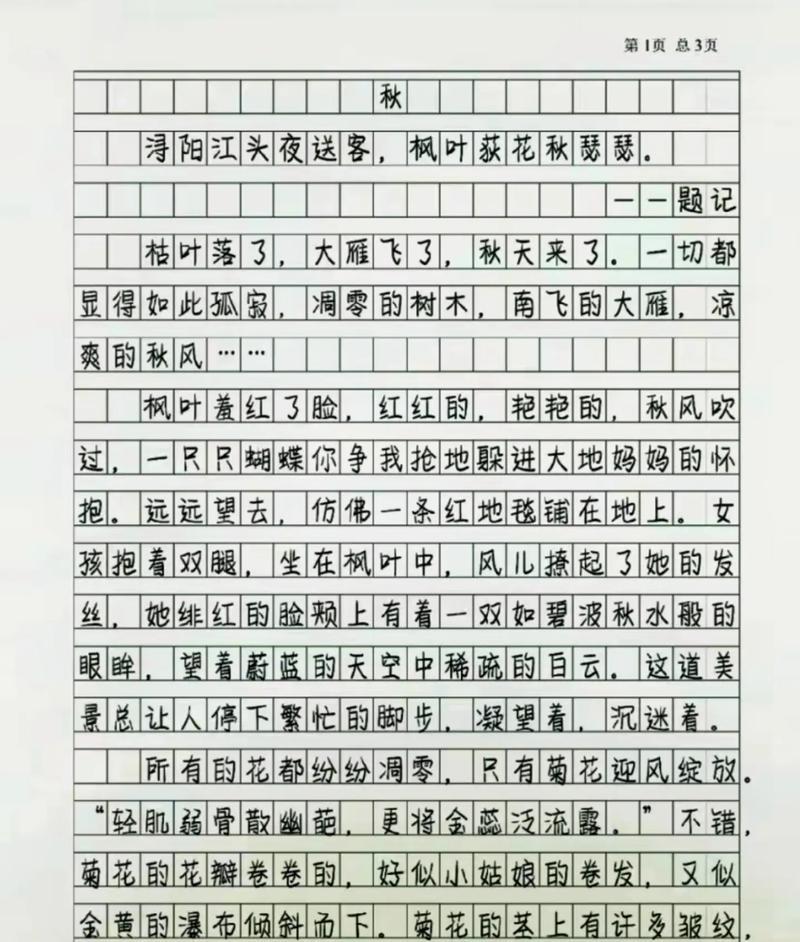 第1页 总3页
秋
浔阳江头夜送客，枫叶荻花秋瑟瑟。
——题记
枯叶落了，大雁飞了，秋天来了。一切都
显得如此孤寂，凋零的树木，南飞的大雁，凉
爽的秋风……
枫叶羞红了脸，红红的，艳艳的，秋风吹
过，一只只蝴蝶你争我抢地躲进大地妈妈的怀
抱。远远望去，仿佛一条红地毯铺在地上。女
孩抱着双腿，坐在枫叶中，风儿撩起了她的发
丝，她绯红的脸颊上有着一双如碧波秋水般的
眼眸，望着蔚蓝的天空中稀疏的白云。这道美
景总让人停下繁忙的脚步，凝望着，沉迷着。
所有的花都纷纷凋零，只有菊花迎风绽放。
“轻肌弱骨散幽葩，更将金蕊泛流露。”不错，
菊花的花瓣卷卷的，好似小姑娘的卷发，又似
金黄的瀑布倾斜而下。菊花的茎上有许多皱纹，